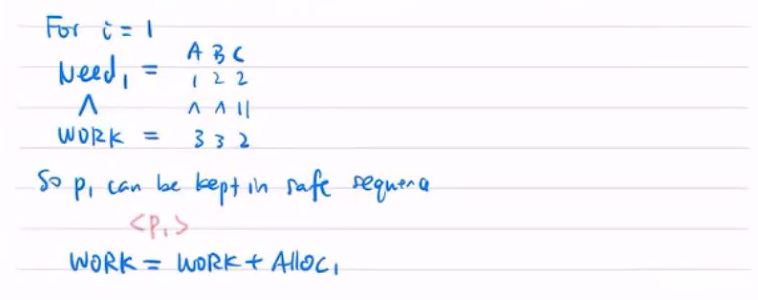 For i = 1
A B C
Need₁ = 1 2 2
∧ ∧ ∧ ||
WORK = 3 3 2
So P₁ can be kept in safe sequence
<P₁>
WORK = WORK + Alloc₁